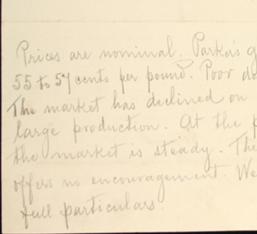 Prices are nominal. Parker's g
55 to 57 cents per pound. Poor do
The market has declined on
large production. At the p
the market is steady. The
offers no encouragement. We
full particulars.